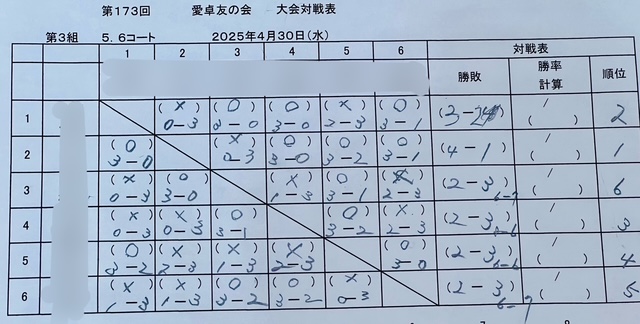 第173回 愛卓友の会 大会対戦表
第3組 5.6コート 2025年4月30日(水)
1 2 3 4 5 6 対戦表
勝敗 勝率計算 順位
1 (×) 0-3 (○) 3-0 (○) 3-0 (×) 2-3 (○) 3-1 (3-2) / ( ) 2
2 (○) 3-0 (×) 0-3 (○) 3-0 (○) 3-2 (○) 3-1 (4-1) / ( ) 1
3 (×) 0-3 (○) 3-0 (×) 1-3 (○) 3-1 (×) 2-3 (2-3) 6-7 / ( ) 6
4 (×) 0-3 (×) 0-3 (○) 3-1 (○) 3-2 (×) 2-3 (2-3) 6-6 / ( ) 3
5 (○) 3-2 (×) 2-3 (×) 1-3 (×) 2-3 (○) 3-0 (2-3) 6-6 / ( ) 4
6 (×) 1-3 (×) 1-3 (○) 3-2 (○) 3-2 (×) 0-3 (2-3) 6-7 / ( ) 5